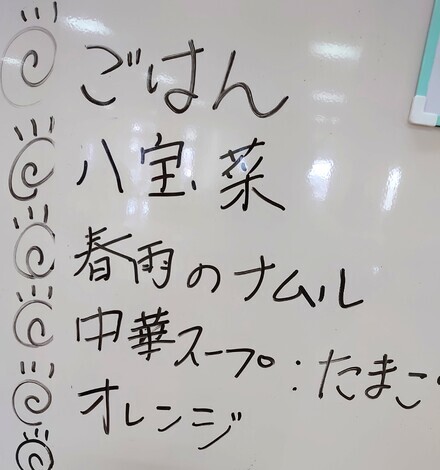 ごはん
八宝菜
春雨のナムル
中華スープ：たまご
オレンジ